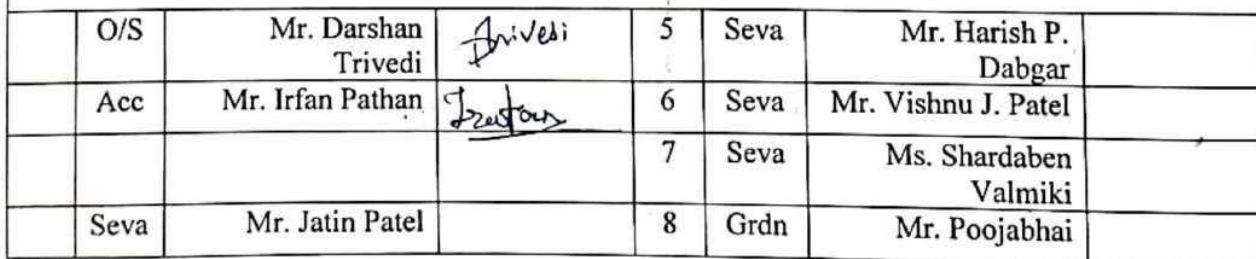 O/S Mr. Darshan Trivedi 5 Seva Mr. Harish P.
Trivedi Dabgar
Acc Mr. Irfan Pathan 6 Seva Mr. Vishnu J. Patel
7 Seva Ms. Shardaben
Valmiki
Seva Mr. Jatin Patel 8 Grdn Mr. Poojabhai